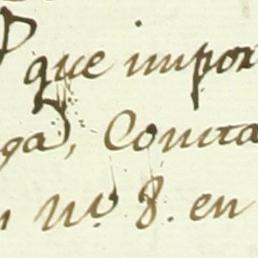 P que impor
ga, Consta
n nº. 8. en